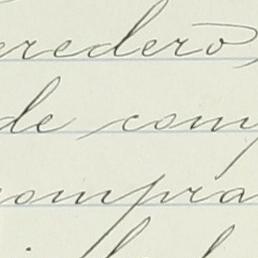 eredero,
de com
compra